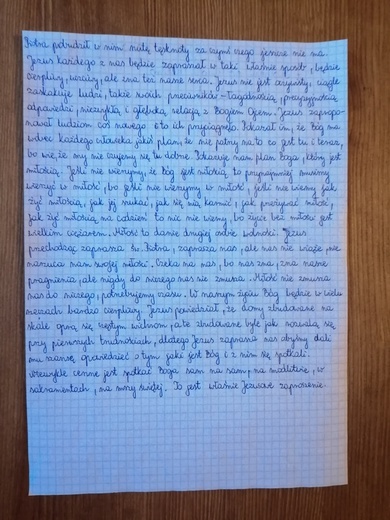 która podrażnił w nim nutę tęsknoty za czymś czego jeszcze nie ma.
Jezus każdego z nas będzie zapraszał w taki właśnie sposób, będzie
cierpliwy, uważny, ale zna też nasze serca. Jezus nie jest oczywisty, ciągle
zaskakuje ludzi, także swoich przeciwników - łagodnością, przystępnością,
odpowiedzi, niezwykłą i głęboką relacją z Bogiem Ojcem. Jezus zapropo-
nował ludziom coś nowego i to ich przyciągnęło. Pokazał im, że Bóg ma
wobec każdego człowieka jakiś plan, że nie patrzy na to co jest tu i teraz,
bo wie, że my nie czujemy się tu dobrze. Pokazuje nam plan Boga, którym jest
miłością. Jeśli nie wierzymy, że Bóg jest miłością, to przynajmniej musimy
wierzyć w miłość, bo jeśli nie wierzymy w miłość, jeśli nie wiemy jak
żyć miłością, jak jej szukać, jak się nią karmić, jak przeżywać miłość,
jak żyć miłością na codzień to nic nie wiemy, bo życie bez miłości jest
wielkim ciężarem. Miłość to danie drugiej osobie wolności. Jezus
przechodząc zaprasza św. Piotra, zaprasza nas, ale nas nie wiąże, nie
narzuca nam swojej miłości. Czeka na nas, bo nas zna, zna nasze
pragnienia, ale nigdy do niczego nas nie zmusza. Miłość nie zmusza
nas do niczego, potrzebujemy czasu. W naszym życiu Bóg będzie w wielu
miejscach bardzo cierpliwy. Jezus powiedział, że domy zbudowane na
skale oprą się częstym wichrom, a te zbudowane byle jak rozwalą się
przy pierwszych trudnościach, dlatego Jezus zaprasza nas abyśmy dali
mu szansę opowiedzieć o tym jaki jest Bóg i z nim się spotkali.
Niezwykle cenne jest spotkać Boga sam na sam, na modlitwie, w
sakramentach, na mszy świętej. To jest właśnie Jezusowe zaproszenie.